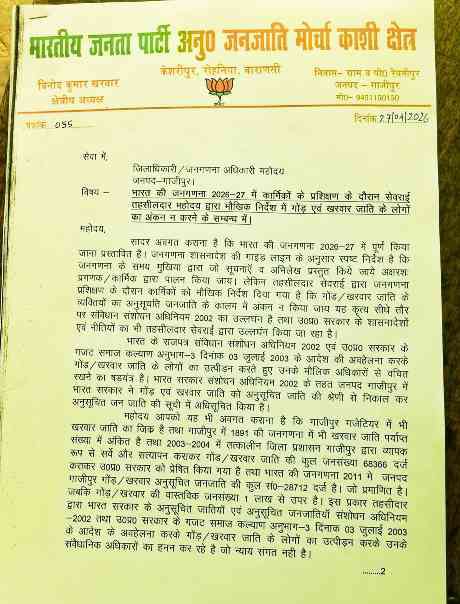 भारतीय जनता पार्टी अनु0 जनजाति मोर्चा काशी क्षेत्र
केशरीपुर, रोहनिया, वाराणसी
विनोद कुमार खरवार
क्षेत्रीय अध्यक्ष
निवास- ग्राम व पो0 रेवतीपुर
जनपद - गाजीपुर
मो0- 9451150150
पत्रांक 035
दिनांक 27/04/2026
सेवा में,
जिलाधिकारी/जनगणना अधिकारी महोदय
जनपद-गाजीपुर।
विषय - भारत की जनगणना 2026-27 में कार्मिकों के प्रशिक्षण के दौरान सेवराई
तहसीलदार महोदय द्वारा मौखिक निर्देश में गोंड़ एवं खरवार जाति के लोगों
का अंकन न करने के सम्बन्ध में।
महोदय,
सादर अवगत कराना है कि भारत की जनगणना 2026-27 में पूर्ण किया
जाना प्रस्तावित है। जनगणना शासनादेश की गाइड लाइन के अनुसार स्पष्ट निर्देश है कि
जनगणना के समय मुखिया द्वारा जो सूचनाएं व अभिलेख प्रस्तुत किये जाये अक्षरशः
प्रगणक/कार्मिक द्वारा पालन किया जाय। लेकिन तहसीलदार सेवराई द्वारा जनगणना
प्रशिक्षण के दौरान कार्मिकों को मौखिक निर्देश दिया गया है कि गोंड/खरवार जाति के
व्यक्तियों का अनुसूचित जनजाति के कालम में अंकन न किया जाय यह कृत्य सीधे तौर
पर संविधान संशोधन अधिनियम 2002 का उल्लंघन है तथा उ0प्र0 सरकार के शासनादेशों
एवं नीतियों का भी तहसीलदार सेवराई द्वारा उल्लंघन किया जा रहा है।
भारत के राजपत्र संविधान संशोधन अधिनियम 2002 एवं उ0प्र0 सरकार के
गजट समाज कल्याण अनुभाग-3 दिनांक 03 जुलाई 2003 के आदेश की अवहेलना करके
गोंड़/खरवार जाति के लोगों का उत्पीड़न करते हुए उनके मौलिक अधिकारों से वंचित
रखने का षडयंत्र है। भारत सरकार संविधान अधिनियम 2002 के तहत जनपद गाजीपुर में
भारत सरकार ने गोंड़ एवं खरवार जाति को अनुसूचित जाति की श्रेणी से निकाल कर
अनुसूचित जन जाति की सूची में अधिसूचित किया है।
महोदय आपको यह भी अवगत कराना है कि गाजीपुर गजेटियर में भी
खरवार जाति का जिक्र है तथा गाजीपुर में 1891 की जनगणना में भी खरवार जाति पर्याप्त
संख्या में अंकित है तथा 2003-2004 में तत्कालीन जिला प्रशासन गाजीपुर द्वारा व्यापक
रूप से सर्वे और सत्यापन कराकर गोंड़/खरवार जाति की कुल जनसंख्या 68366 दर्ज
कराकर उ0प्र0 सरकार को प्रेषित किया गया है तथा भारत की जनगणना 2011 में जनपद
गाजीपुर गोंड़/खरवार अनुसूचित जनजाति की कुल सं0-28712 दर्ज है। जो प्रमाणित है।
जबकि गोंड़/खरवार की वास्तविक जनसंख्या 1 लाख से उपर है। इस प्रकार तहसीदार
द्वारा भारत सरकार के अनुसूचित जातियों एवं अनुसूचित जनजातियों संशोधन अधिनियम
-2002 तथा उ0प्र0 सरकार के गजट समाज कल्याण अनुभाग-3 दिनांक 03 जुलाई 2003
के आदेश के अवहेलना करके गोंड़/खरवार जाति के लोगों का उत्पीड़न करके उनके
संवैधानिक अधिकारों का हनन कर रहे है जो न्याय संगत नही है।
.........2